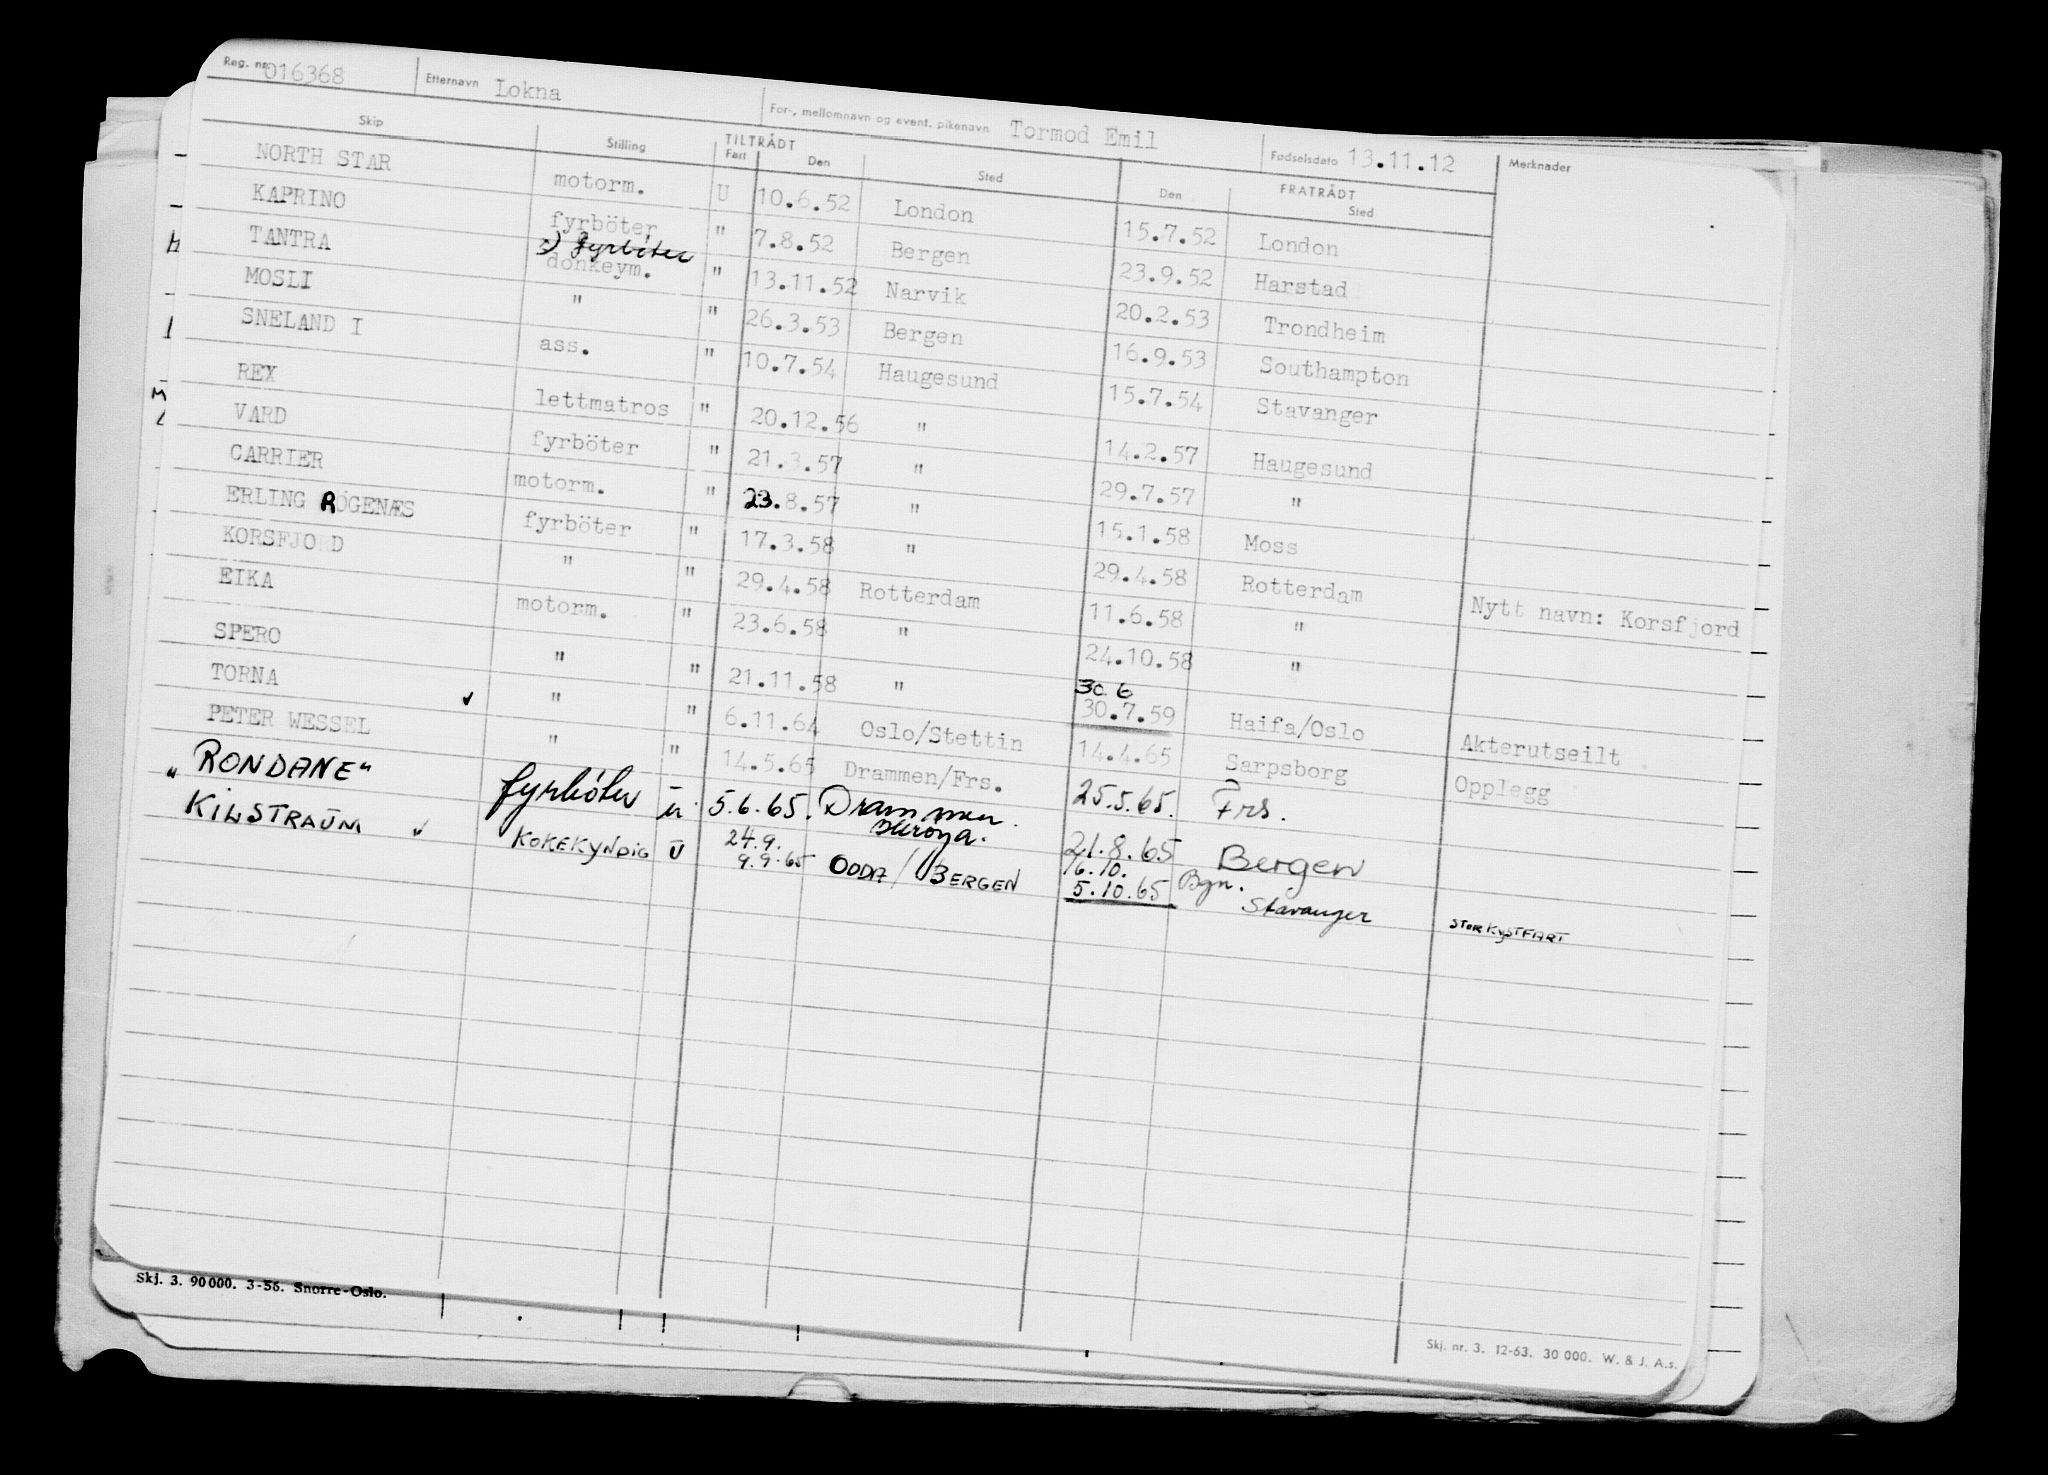 Reg. nr. 016368 Etternavn Lokna For-, mellomnavn og event. pikenavn Tormod Emil Fødselsdato 13.11.12 Merknader
Skip Stilling TILTRÅDT Fart Den Sted FRATRÅDT Den Sted
NORTH STAR motorm. U 10.6.52 London 15.7.52 London
KAPRINO fyrböter " 7.8.52 Bergen 23.9.52 Harstad
TANTRA donkeym. fyrböter " 13.11.52 Narvik 20.2.53 Trondheim
MOSLI " " 26.3.53 Bergen 16.9.53 Southampton
SNELAND I ass. " 10.7.54 Haugesund 15.7.54 Stavanger
REX lettmatros " 20.12.56 " 14.2.57 Haugesund
VARD fyrböter " 21.3.57 " 29.7.57 "
CARRIER motorm. " 23.8.57 " 15.1.58 Moss
ERLING RÖGENÆS fyrböter " 17.3.58 " 29.4.58 Rotterdam Nytt navn: Korsfjord
KORSFJORD " " 29.4.58 Rotterdam 11.6.58 "
EIKA motorm. " 23.6.58 " 24.10.58 "
SPERO " " 21.11.58 " 30.6 30.7.59 Haifa/Oslo Akterutseilt
TORNA " " 6.11.64 Oslo/Stettin 14.4.65 Sarpsborg Opplegg
PETER WESSEL " " 14.5.65 Drammen/Frs. 25.5.65. Frs.
"RONDANE" fyrböter u 5.6.65. Drammen 21.8.65 Bergen
KILSTRAUM KOKEKYNDIG U 24.9. 9.9.65 ODDA/BERGEN 16.10. 5.10.65 Bgn. Stavanger STOR KYSTFART
Skj. 3. 90000. 3-56. Snorre-Oslo.
Skj. nr. 3. 12-63. 30 000. W. & J. A.s.